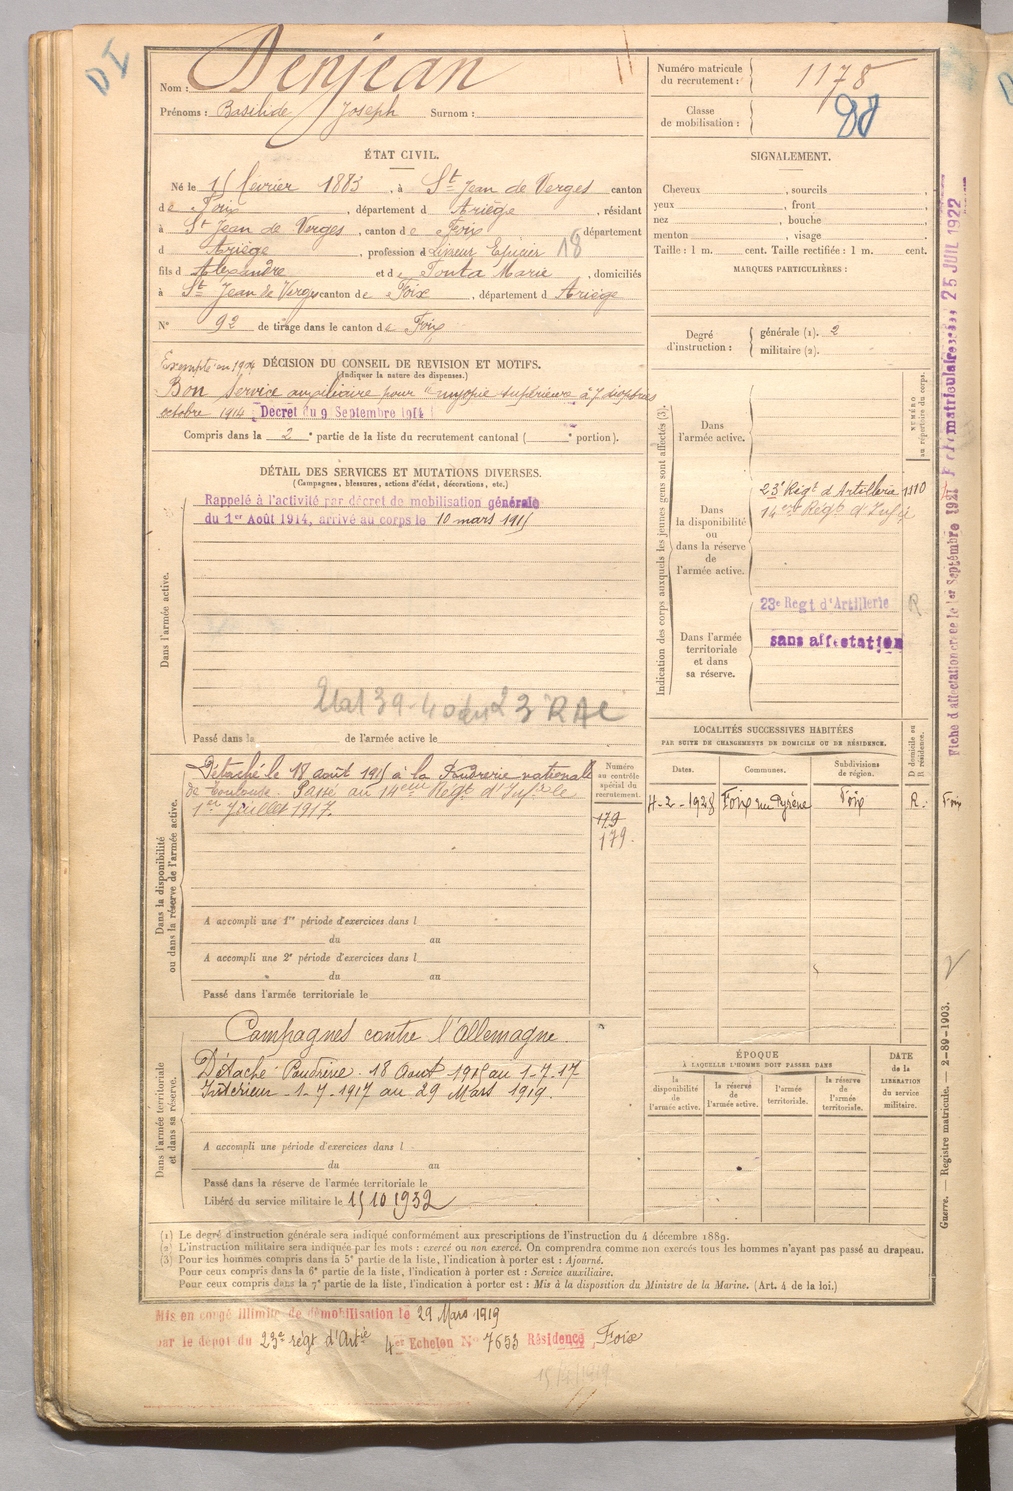 DI
Nom : Denjean
Prénoms : Basilide Joseph Surnom :
Numéro matricule du recrutement : 1178
Classe de mobilisation :
ÉTAT CIVIL.
Né le 15 février 1883, à St Jean de Verges canton
de Foix, département d Ariège, résidant
à St Jean de Verges, canton de Foix département
d Ariège, profession d Epicier 18
fils d Alexandre et de Fonta Marie, domiciliés
à St Jean de Verges canton de Foix, département d Ariège
N° 92 de tirage dans le canton de Foix
SIGNALEMENT.
Cheveux , sourcils
yeux , front
nez , bouche
menton , visage
Taille : 1 m. cent. Taille rectifiée : 1 m. cent.
MARQUES PARTICULIÈRES :
Degré d'instruction : générale (1). 2
militaire (2).
Exempté en 1904 DÉCISION DU CONSEIL DE REVISION ET MOTIFS.
(Indiquer la nature des dispenses.)
Bon Service auxiliaire pour "myopie supérieure à 7 dioptries
octobre 1914 Décret du 9 Septembre 1914
Compris dans la 2e partie de la liste du recrutement cantonal ( e portion).
DÉTAIL DES SERVICES ET MUTATIONS DIVERSES.
(Campagnes, blessures, actions d'éclat, décorations, etc.)
Dans l'armée active.
Rappelé à l'activité par décret de mobilisation générale
du 1er Août 1914, arrivé au corps le 10 mars 1915
Etat 39-40 du 23 RAC
Passé dans la de l'armée active le
Indication des corps auxquels les jeunes gens sont affectés (3).
NUMÉRO au répertoire du corps.
Dans l'armée active.
Dans la disponibilité ou dans la réserve de l'armée active.
23e Régt d'Artillerie 1310
14ème Régt d'Infie
Dans l'armée territoriale et dans sa réserve.
23e Regt d'Artillerie R
sans affectation
Fiche d'affectation créée le 1er Septembre 1921
matriculaire 25 JUIL 1922
Dans la disponibilité ou dans la réserve de l'armée active.
Numéro au contrôle spécial du recrutement.
179
179.
Détaché le 18 août 1915 à la Poudrerie nationale
de Toulouse. Passé au 14eme Régt d'Infrie le
1er Juillet 1917.
A accompli une 1re période d'exercices dans l
du au
A accompli une 2e période d'exercices dans l
du au
Passé dans l'armée territoriale le
LOCALITÉS SUCCESSIVES HABITÉES
PAR SUITE DE CHANGEMENTS DE DOMICILE OU DE RÉSIDENCE.
Dates. Communes. Subdivisions de région. D domicile ou R résidence.
4-2-1928 Foix Foix R. Foix
Dans l'armée territoriale et dans sa réserve.
Campagnes contre l'Allemagne.
Détaché Poudrerie. 18 Août 1915 au 1-7-17
Intérieur 1-7-1917 au 29 Mars 1919.
A accompli une période d'exercices dans l
du au
Passé dans la réserve de l'armée territoriale le
Libéré du service militaire le 15 10 1932
ÉPOQUE
À LAQUELLE L'HOMME DOIT PASSER DANS
la disponibilité de l'armée active.
la réserve de l'armée active.
l'armée territoriale.
la réserve de l'armée territoriale.
DATE de la LIBÉRATION du service militaire.
Guerre. — Registre matricule — 2-89-1903.
(1) Le degré d'instruction générale sera indiqué conformément aux prescriptions de l'instruction du 4 décembre 1889.
(2) L'instruction militaire sera indiquée par les mots : exercé ou non exercé. On comprendra comme non exercés tous les hommes n'ayant pas passé au drapeau.
(3) Pour les hommes compris dans la 5e partie de la liste, l'indication à porter est : Ajourné.
Pour ceux compris dans la 6e partie de la liste, l'indication à porter est : Service auxiliaire.
Pour ceux compris dans la 7e partie de la liste, l'indication à porter est : Mis à la disposition du Ministre de la Marine. (Art. 4 de la loi.)
Mis en congé illimité de démobilisation le 29 Mars 1919
par le dépôt du 23e régt d'Artie 4er Echelon N° 7653 Résidence Foix